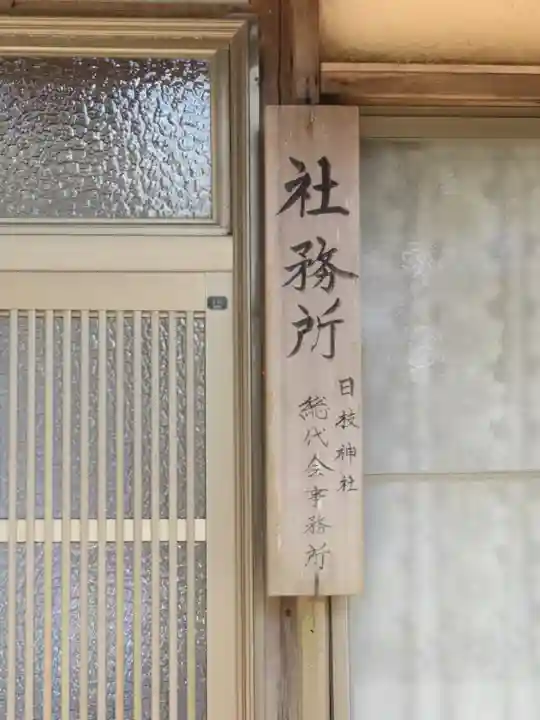 社務所
日枝神社
総代会事務所